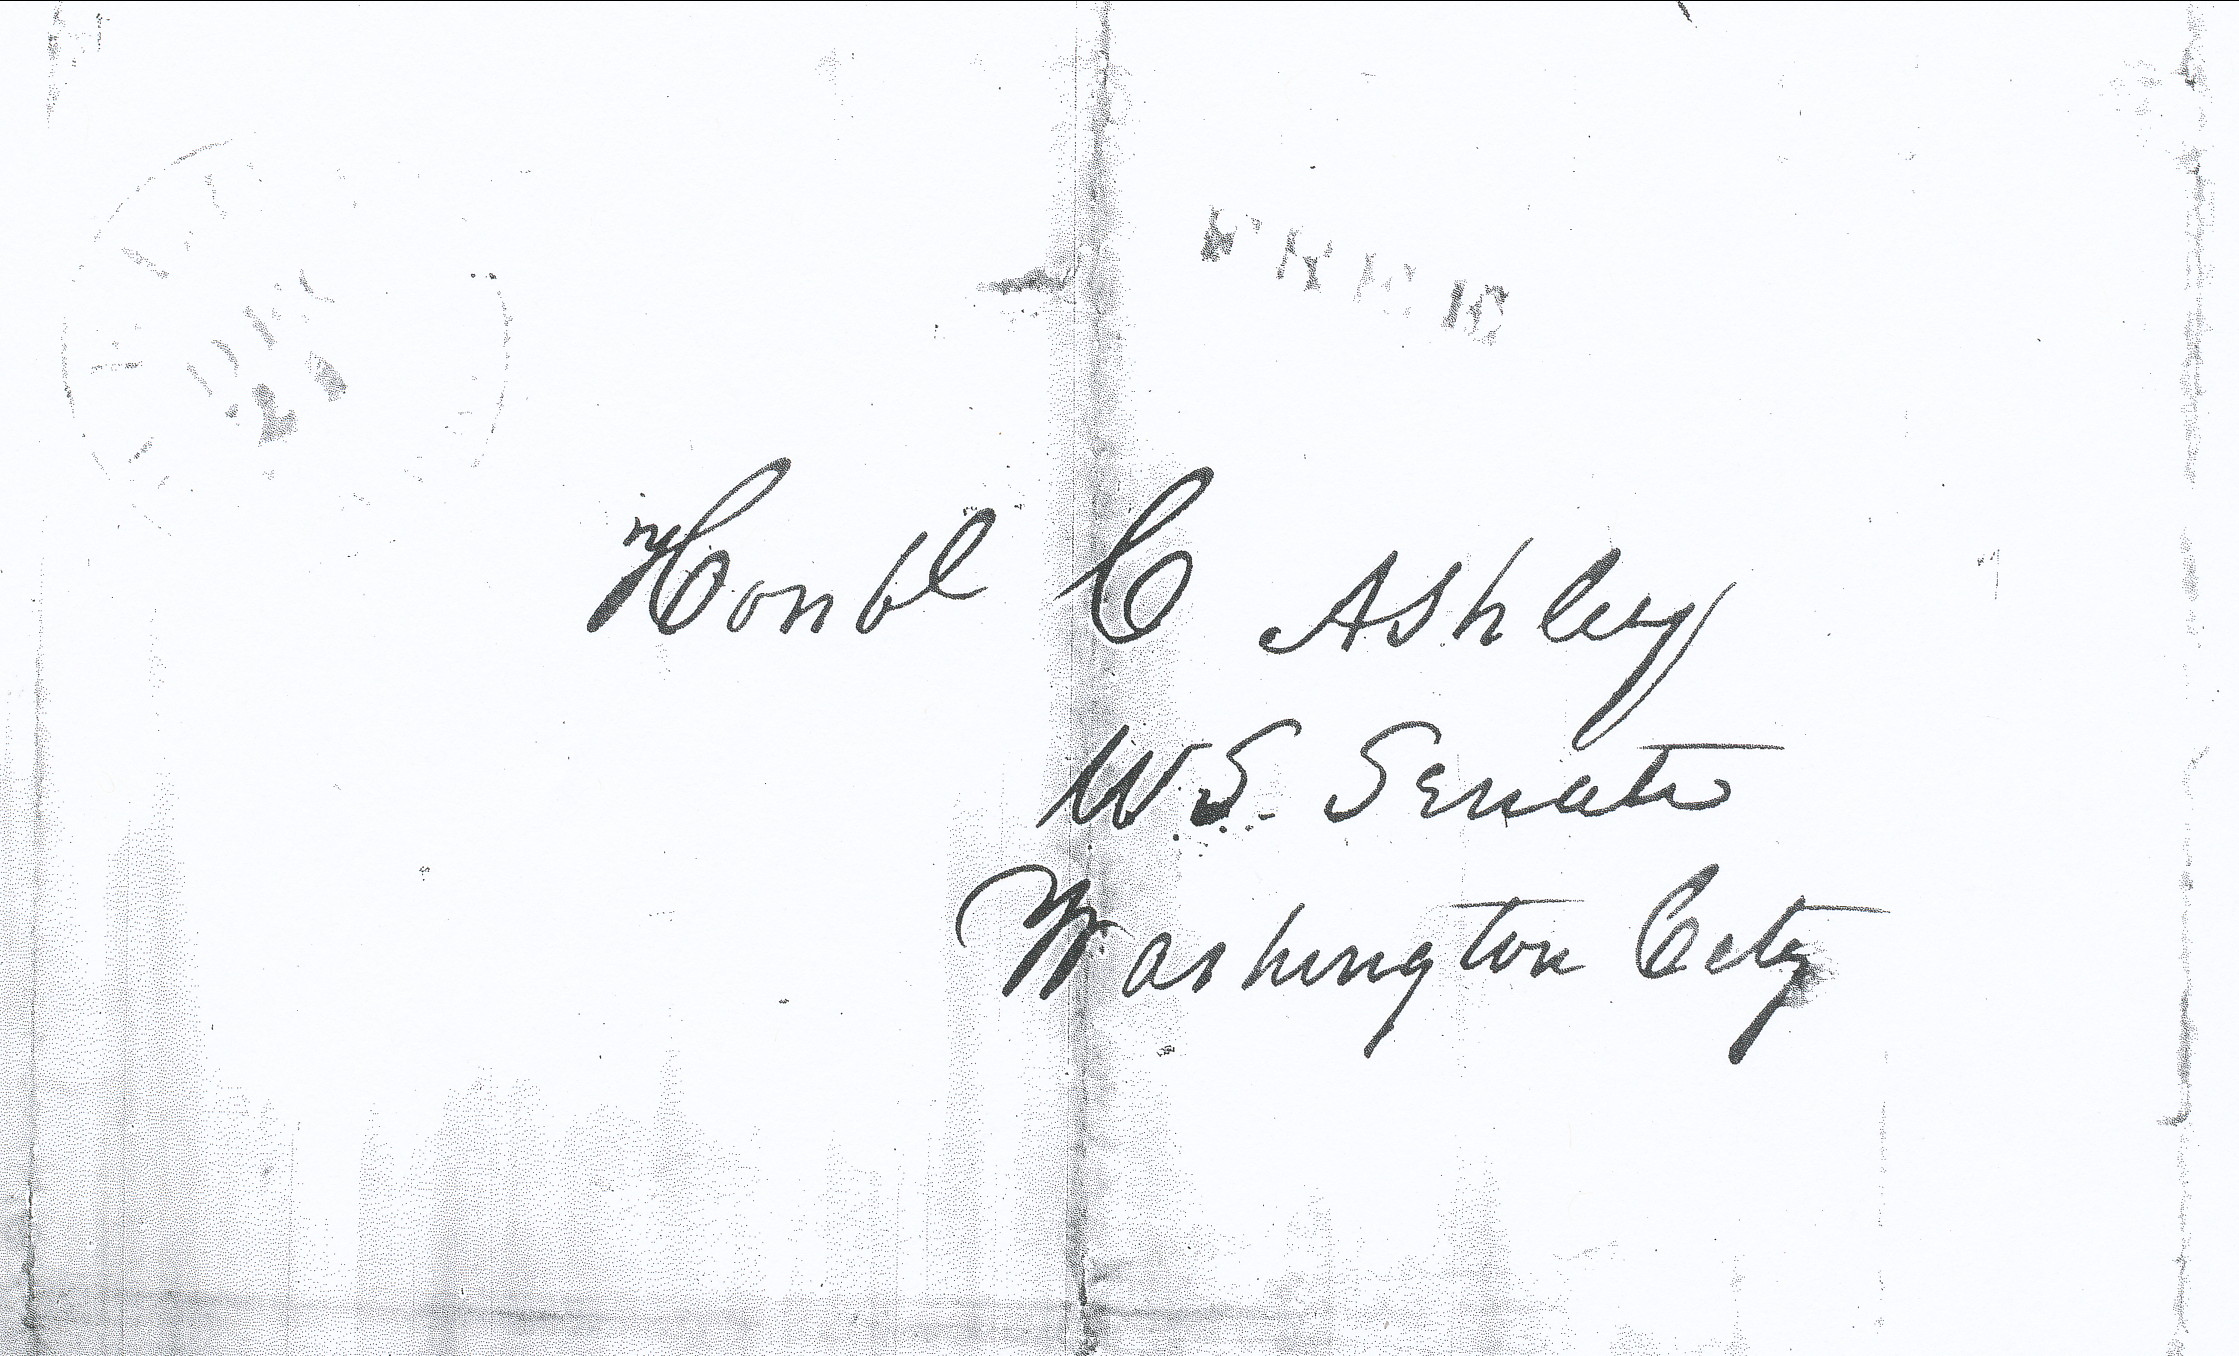 FREE
DEC
Honbl C Ashley
U.S. Senate
Washington City